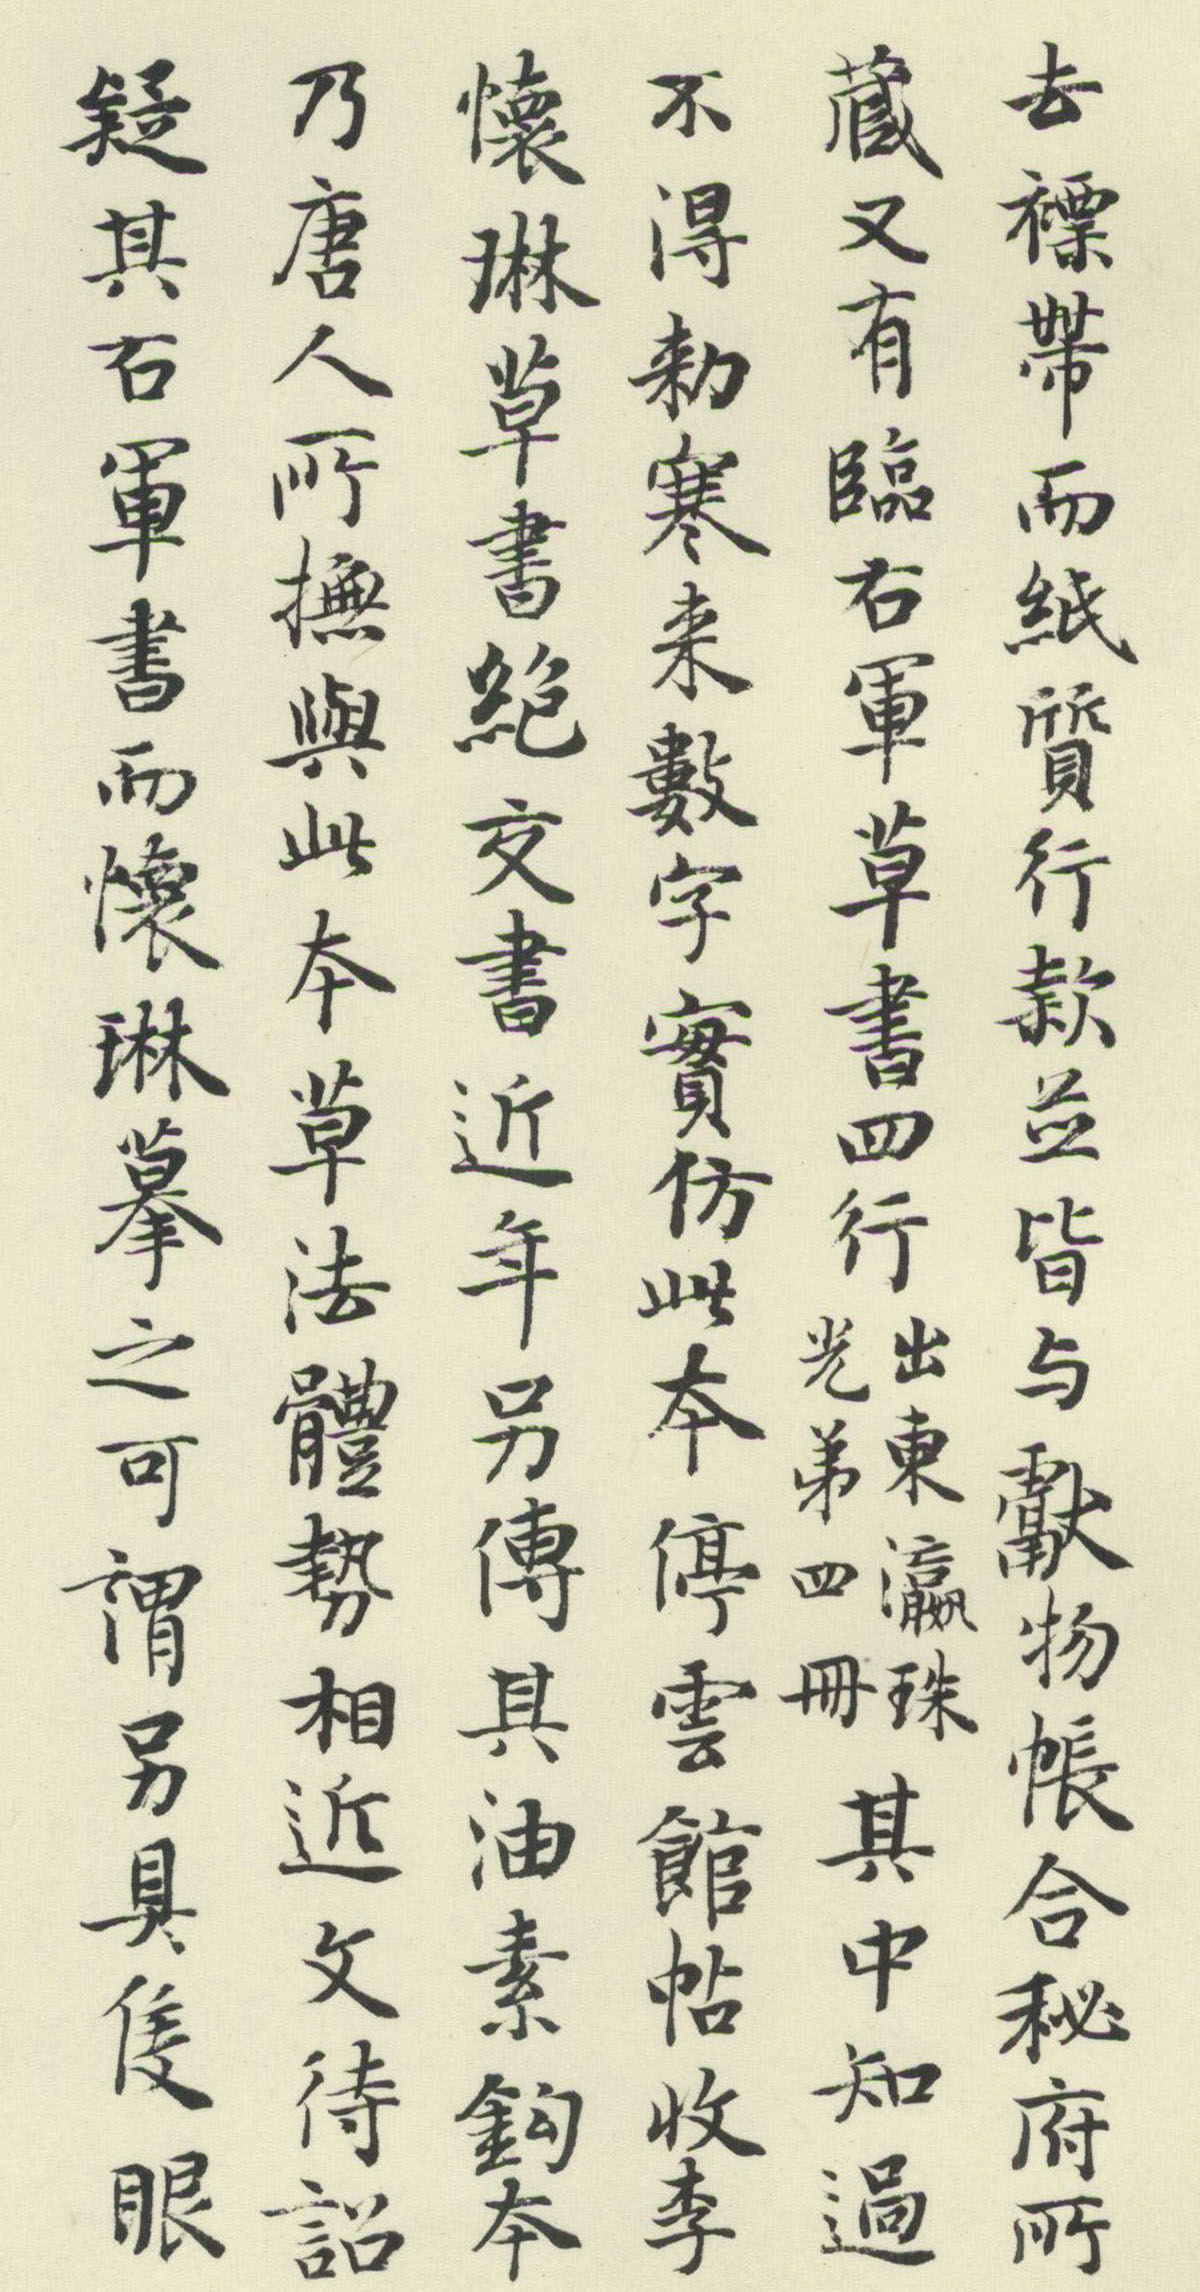 去褾帶而紙質行款並皆与獻物帳合秘府所
藏又有臨右軍草書四行出東瀛珠光弟四冊其中知過
不得勅寒来數字實仿此本停雲館帖收李
懷琳草書絕交書近年另傳其油素鉤本
乃唐人所撫與此本草法體勢相近文待詔
疑其右軍書而懷琳摹之可謂另具隻眼